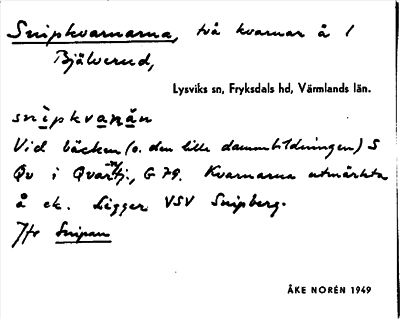 Snipkvarnarna, två kvarnar å 1
Bjälverud,
Lysviks sn, Fryksdals hd, Värmlands län.
snipkvanan
Vid bäcken (o. den lille dammbildningen) S
Qv i Qvarntj., G 79. Kvarnarna utmärkta
å ek. Ligger VSV Snipberg.
Jfr Snipan
ÅKE NORÉN 1949